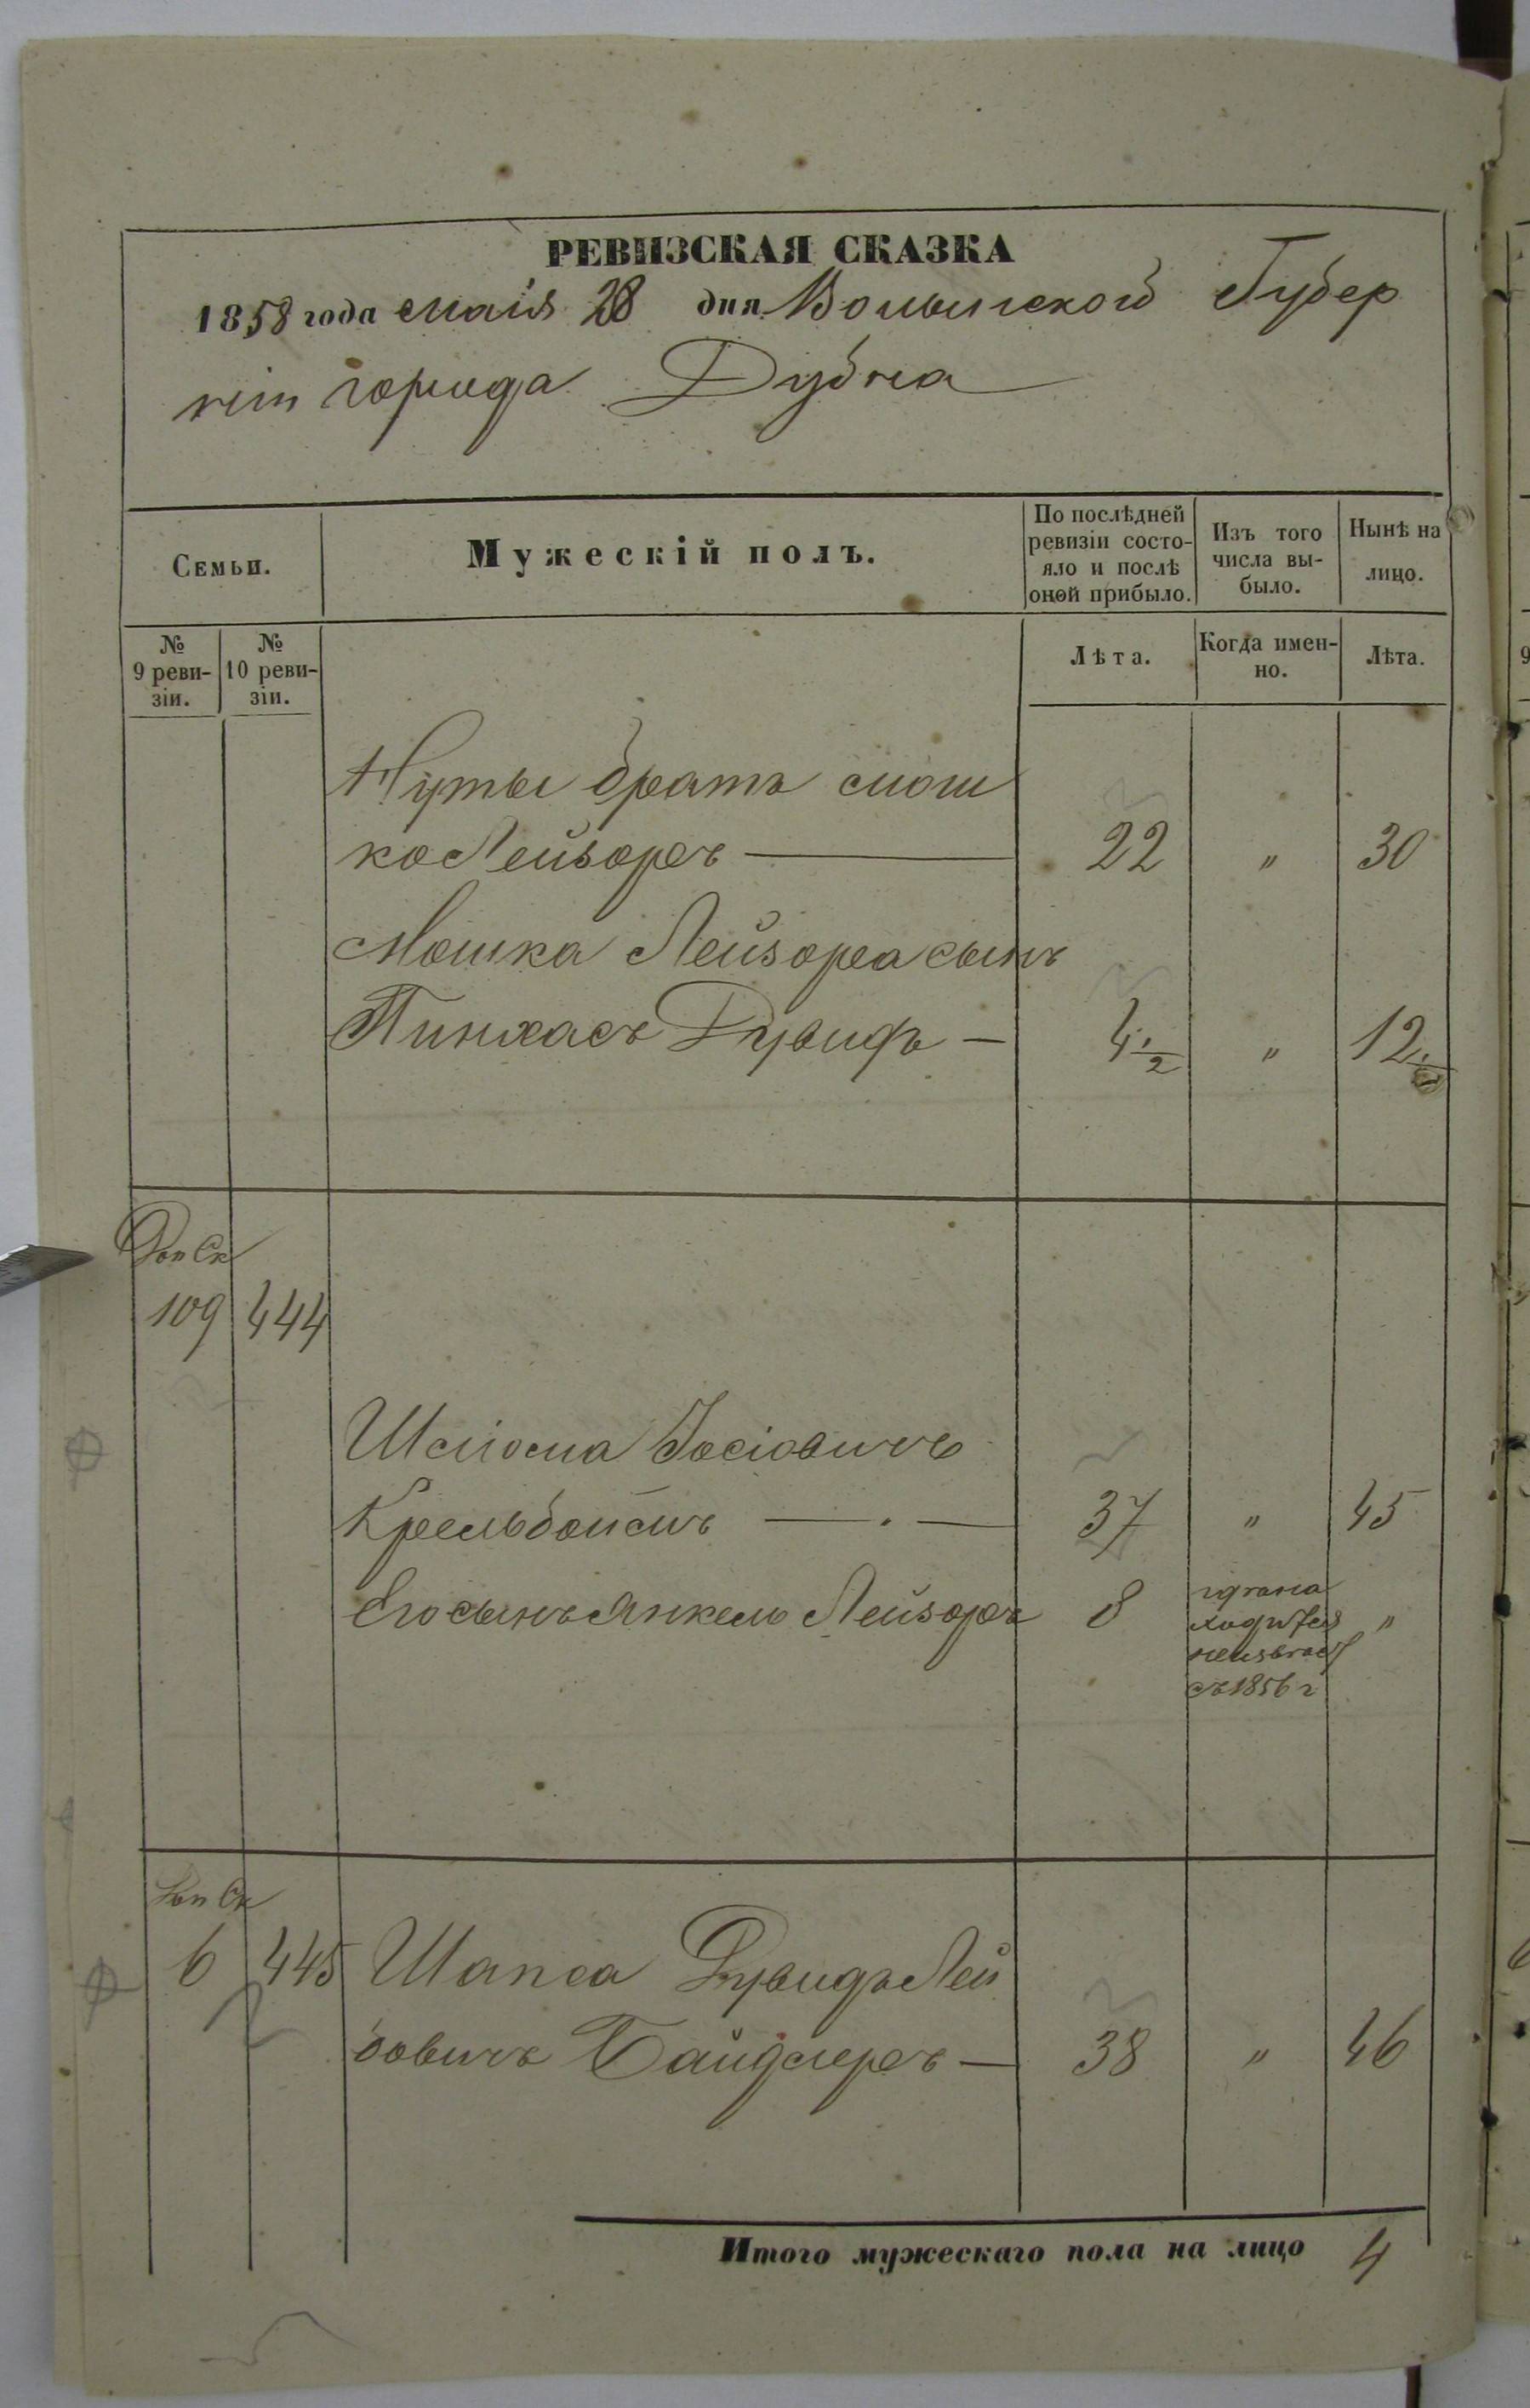 РЕВИЗСКАЯ СКАЗКА
1858 года маія 28 дня Волынской Губер
ніи города Дубна
Семьи.
Мужескій полъ.
По послѣдней ревизіи состо-
яло и послѣ оной прибыло.
Изъ того числа вы-
было.
Нынѣ на лицо.
№ 9 реви-
зіи.
№ 10 реви-
зіи.
Лѣта.
Когда имен-
но.
Лѣта.
Нуты братъ Мош
ко Лейзоръ — 22 " 30
Мошка Лейзора сынъ
Пинхасъ Дувидъ — 4½ " 12½
Доп Ск
109 444
Шлиома Іосіовичъ
Крельбоймъ — 37 " 45
Его сынъ Янкель Лейзоръ 8 "
съ 1856 г
Доп Ск
6 445 Шапса Дувидъ Лей
бовичъ Байдлеръ — 38 " 46
Итого мужескаго пола на лицо 4